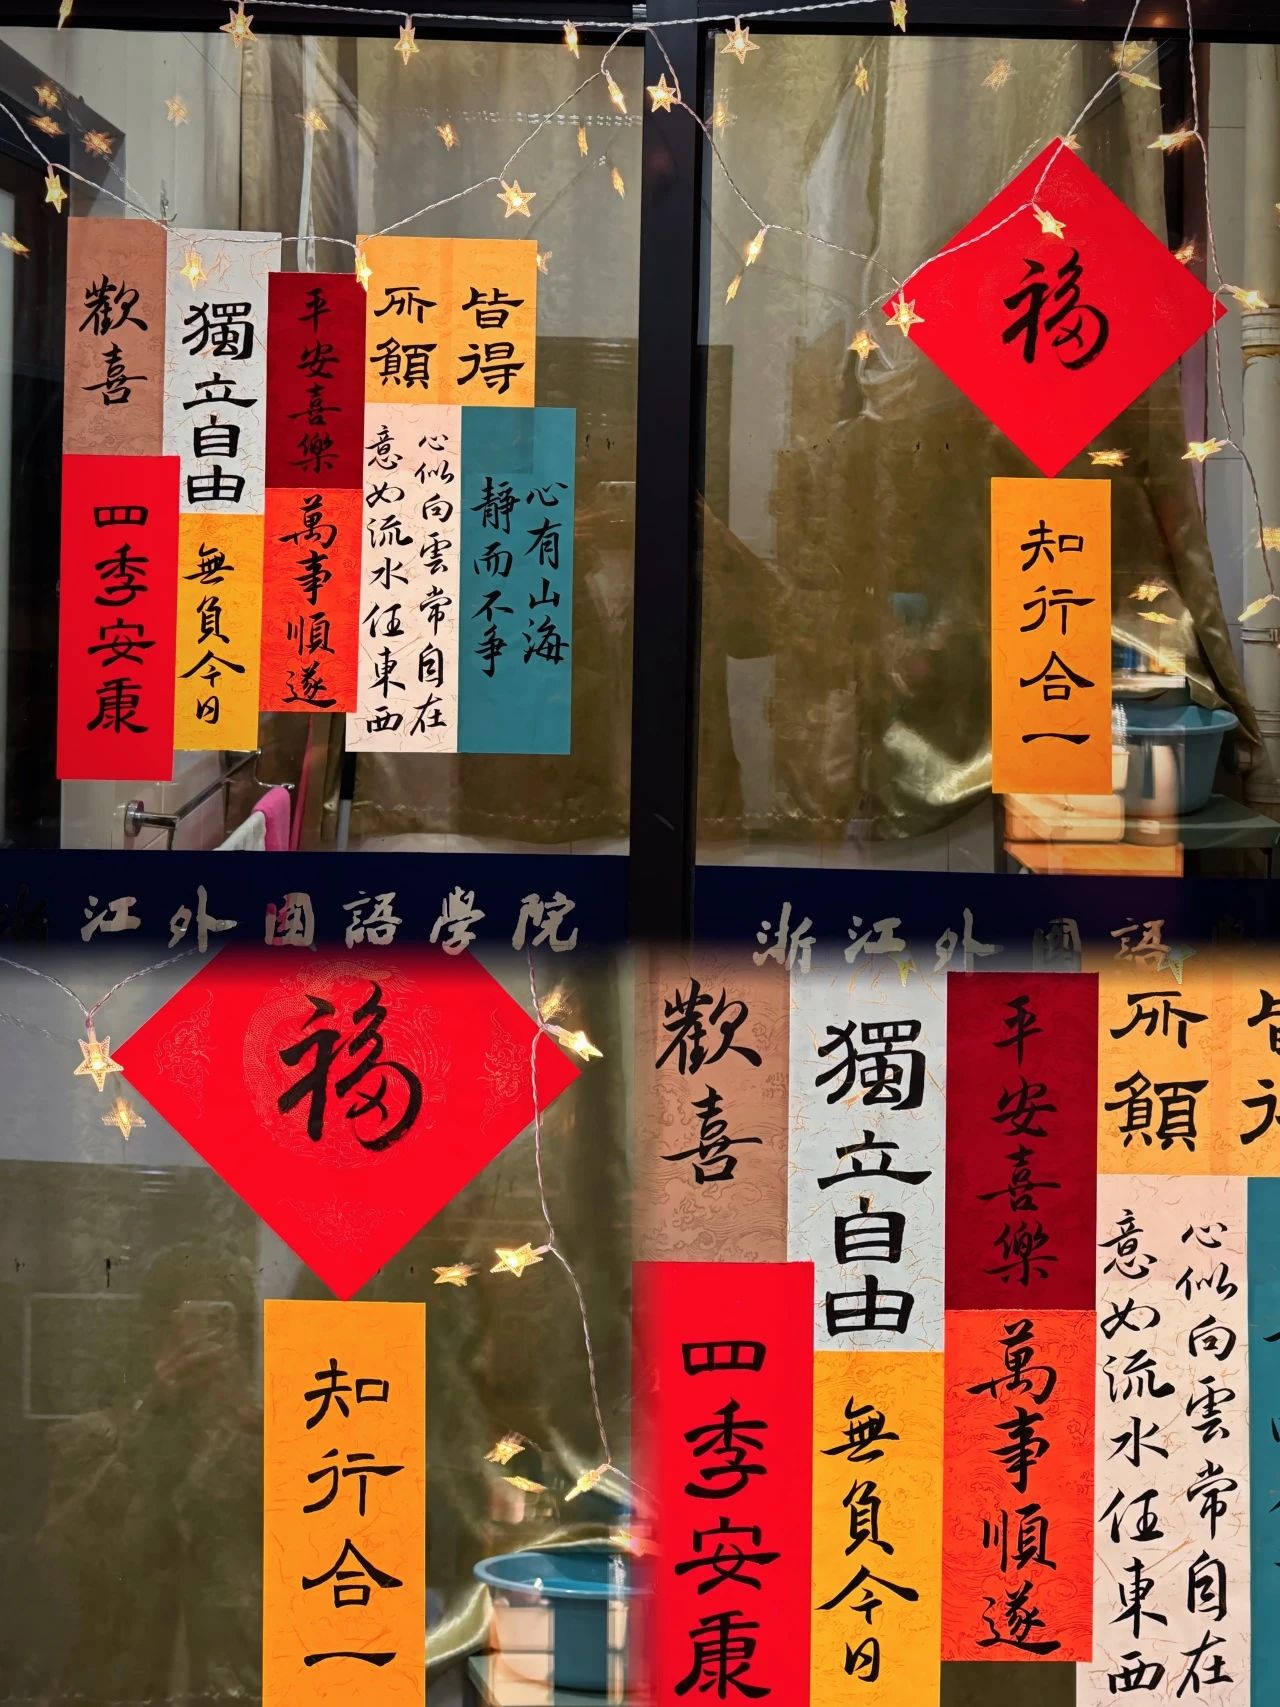 歡喜
獨立自由
平安喜樂
所願
皆得
四季安康
無負今日
萬事順遂
心似向雲常自在
意如流水任東西
心有山海
靜而不爭
福
知行合一
浙江外国語學院
浙江外国語
福
知行合一
歡喜
獨立自由
平安喜樂
所願
皆
四季安康
無負今日
萬事順遂
心似向雲常自在
意如流水任東西